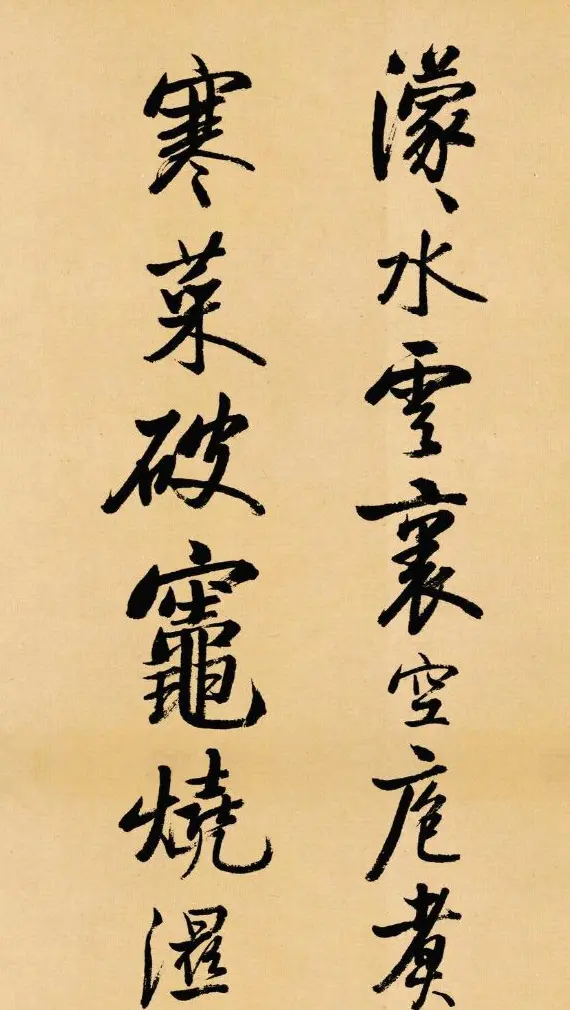 濛々水雲裏空庖煮
寒菜破竈燒濕